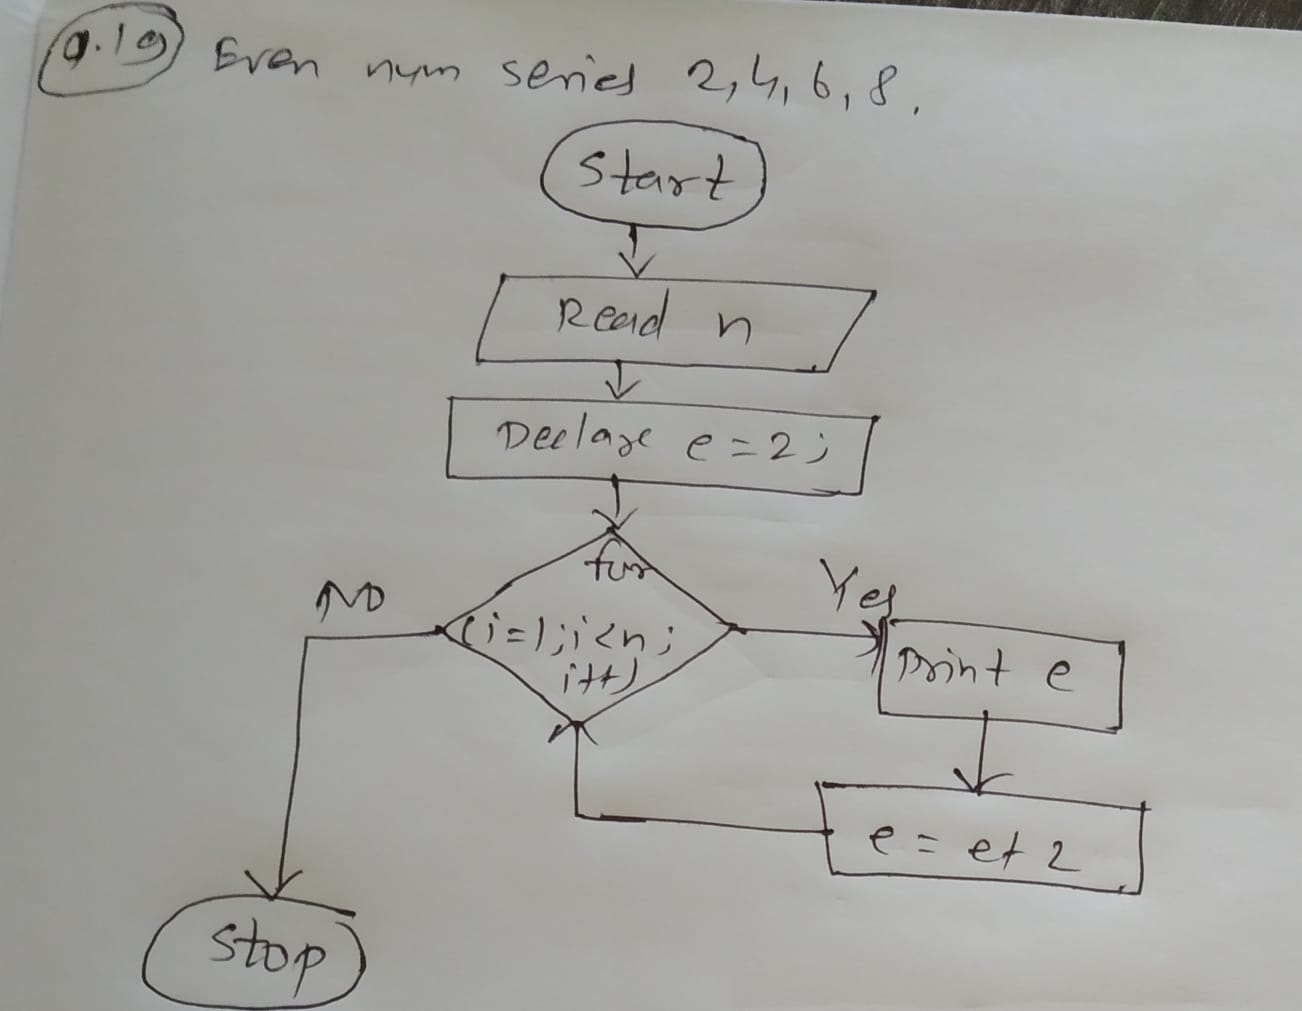 Q.19 Even num series 2,4,6,8.
Start
Read n
Declare e=2;
for
(i=1;i<n;
i++)
NO
Yes
Print e
e = e+2
Stop